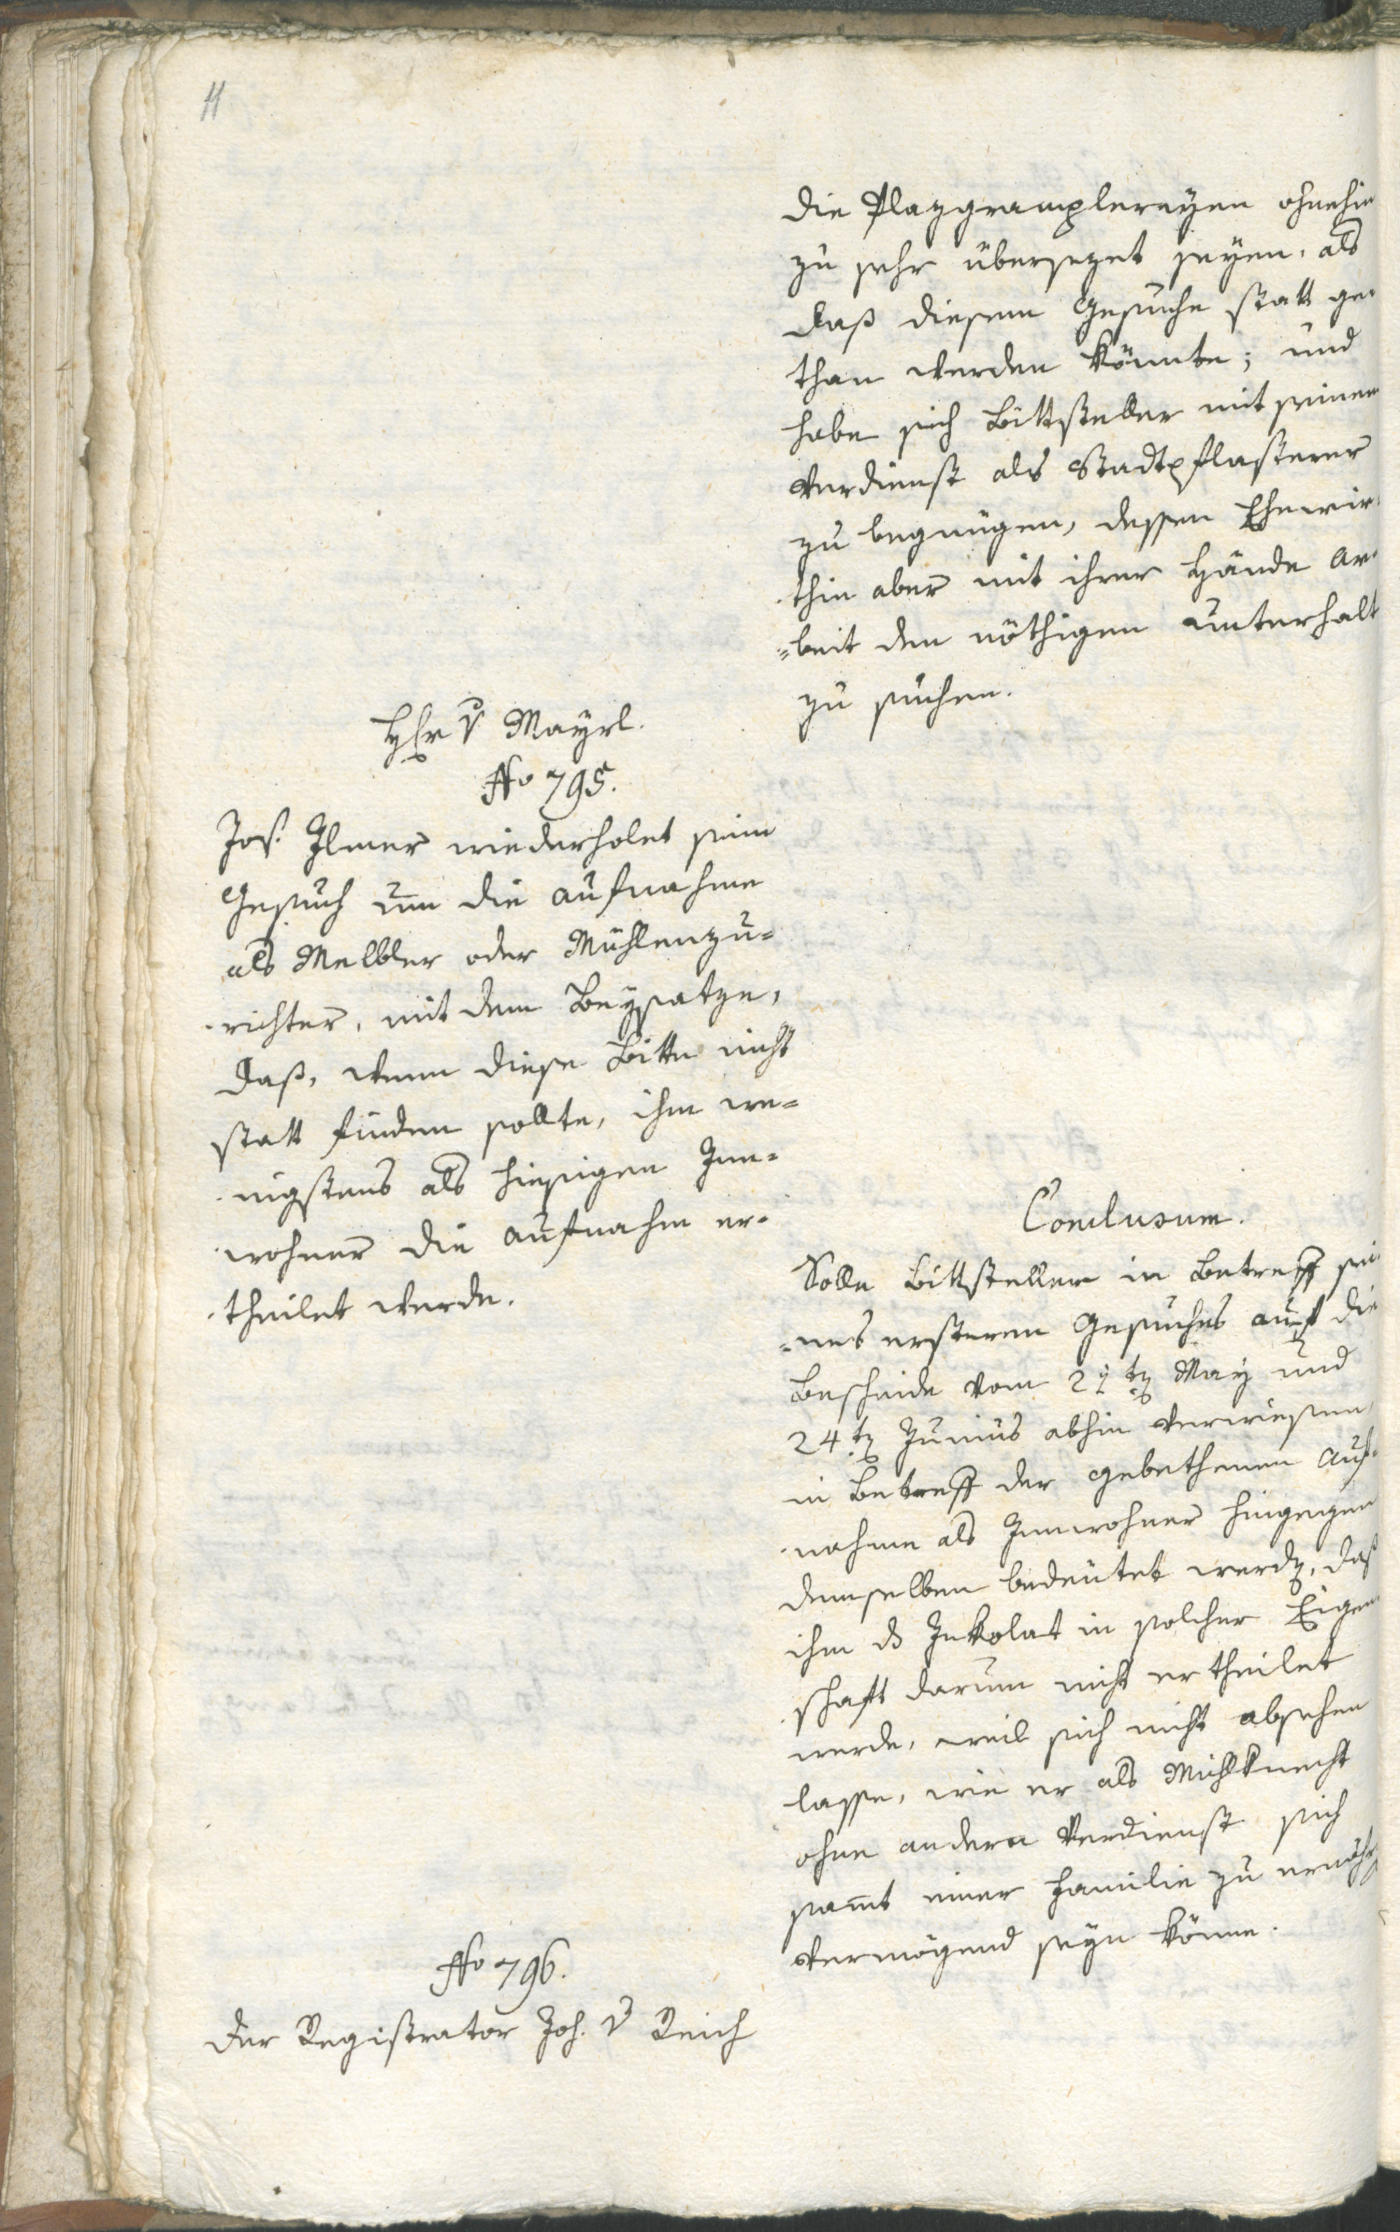 11
die Plazgramplereyen ohnehin
zu sehr übersezet seyen, als
daß diesem Gesuche statt ge-
than werden könnte; und
habe sich Bittsteller mit seinem
Verdienst als Stadtpflasterer
zu begnügen, dessen Ehewir-
thin aber mit ihrer Hände Ar-
=beit den nöthigen Unterhalt
zu suchen.
Hr v Mayrl.
No 795.
Jos. Ilmer wiederholet sein
Gesuch um die Aufnahme
als Melbler oder Mühlenzu=
richter, mit dem Beysatze,
daß, wenn diese Bitte nicht
statt finden sollte, ihm we=
nigstens als hiesigen Inn=
wohner die Aufnahm er=
theilet werde.
Conclusum.
Solle Bittsteller in Betreff sei-
=nes ersteren Gesuches auf die
Bescheide vom May und
24tn Junius abhin verwiesen,
in Betreff der gebethenen Auf=
nahme als Innwohner hingegen
demselben bedeutet werdn, daß
ihm ds Inkolat in solcher Eigen
schaft darum nicht ertheilet
werde, weil sich nicht absehen
lasse, wie er als Mühlknecht
ohne andern Verdienst sich
samt einer Familie zu ernährn
vermögend seyn könne.
No 796.
Der Registrator Joh. v Reich